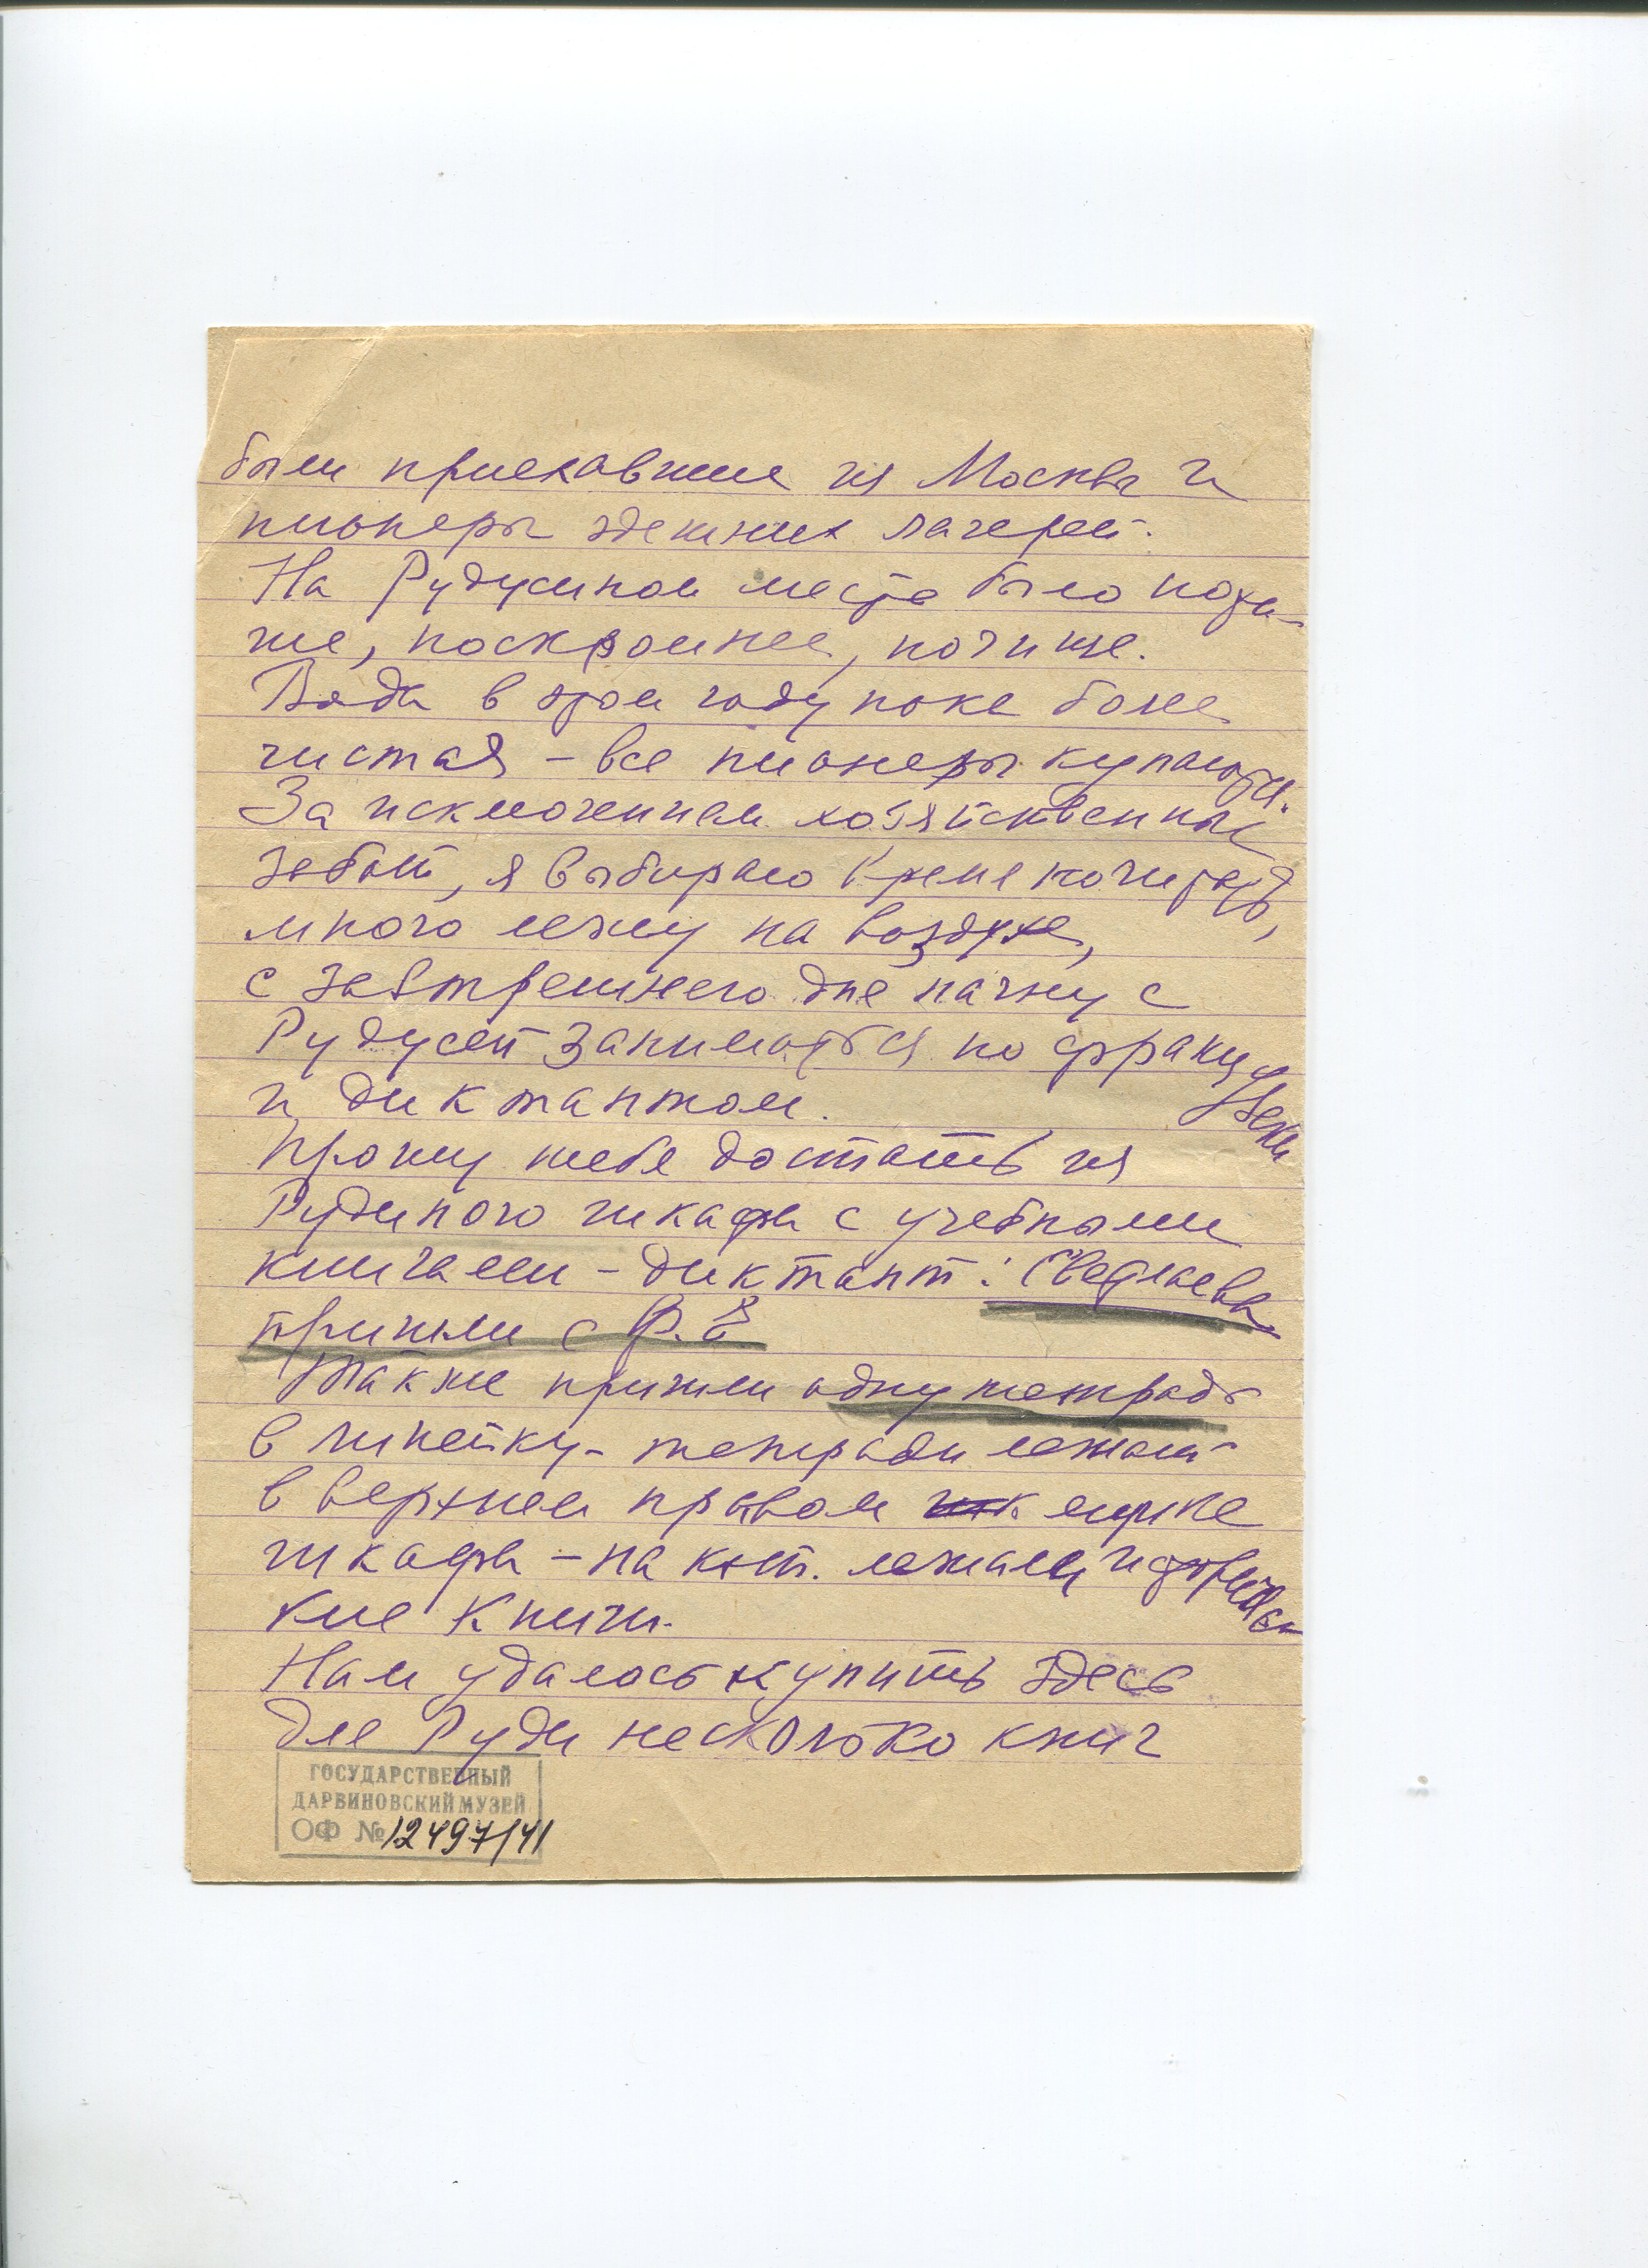 были приехавшие из Москвы и
пионеры здешних лагерей.
На Рудусином месте было поти-
ше, поскромнее, почище.
Вода в этом году пока более
чистая – все пионеры купаются.
За исключением хозяйственных
забот, я выбираю время почитать,
много лежу на воздухе,
с завтрешнего дня начну с
Рудусей заниматься по французски
и диктантом.
Прошу тебя достать из
Рудиного шкафа с учебными
книгами – диктант:
пришли с Ф. Е
Также пришли одну тетрадь
в линейку – тетради лежат
в верхнем правом ящике
шкафа – на кот. лежали
кие книги.
Нам удалось купить здесь
для Руди несколько книг
ГОСУДАРСТВЕННЫЙ
ДАРВИНОВСКИЙ МУЗЕЙ
ОФ № 12497/41